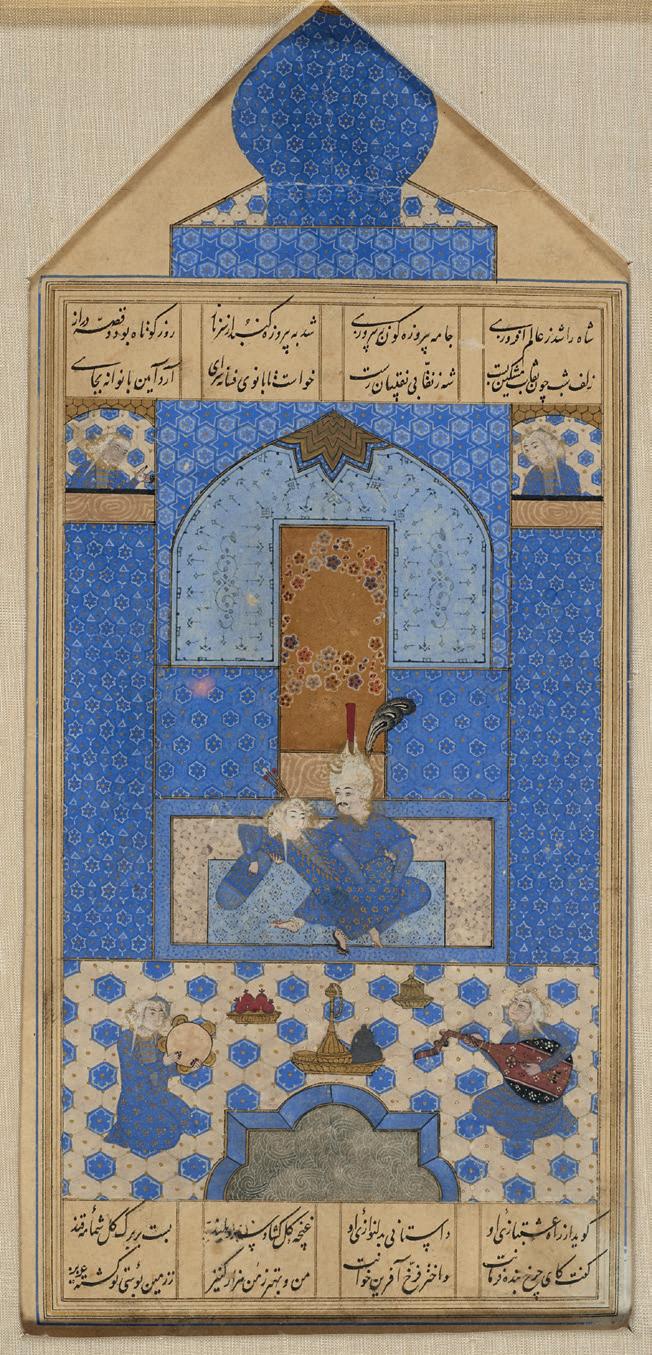 شاه را شد ز عالم افروزی جامه پیروزه گون ز پیروزی شد به پیروزه گنبد از سر ناز روز کوتاه بود و قصه دراز
زلف شب چون نقاب مشکین بست شه ز نقابی نقیبان رست خواست تا بانوی فسانه سرای آرد آیین بانوانه بجای
گوید از راه عشقبازی او داستانی به دلنوازی او غنچه گل گشاد سرو بلند بست بر برگ گل شمامه قند
گفت کای چرخ بنده فرمانت و اختر فرخ آفرین خوانت من و بهتر ز من هزار کنیز ززمین بوسی تو گشته عزیز